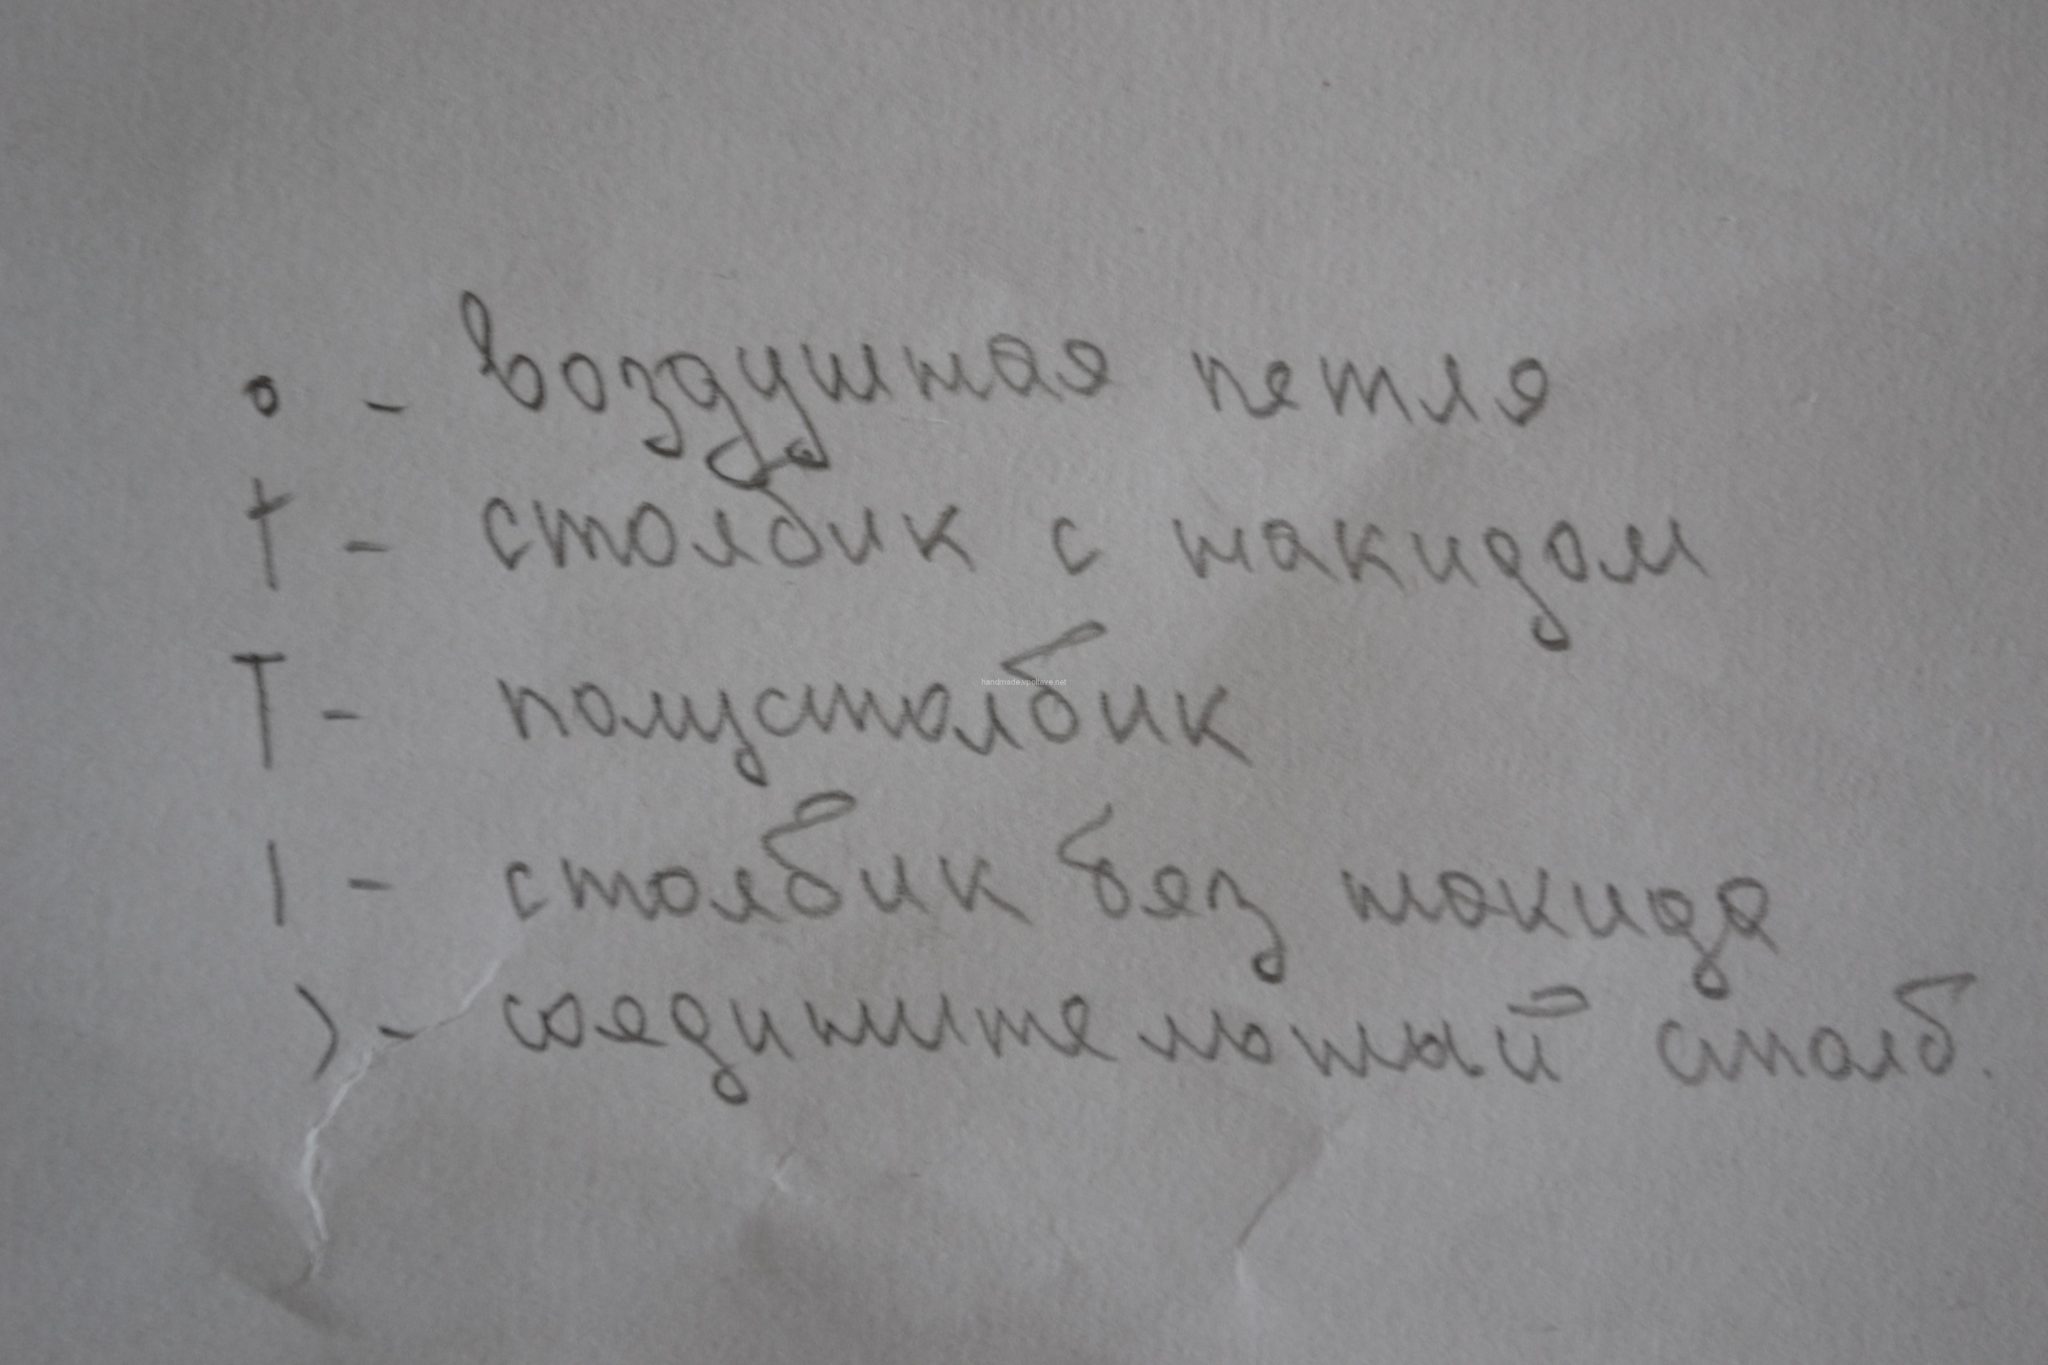 о - воздушная петля
† - столбик с накидом
Т - полустолбик
| - столбик без накида
) - соединительный столб.